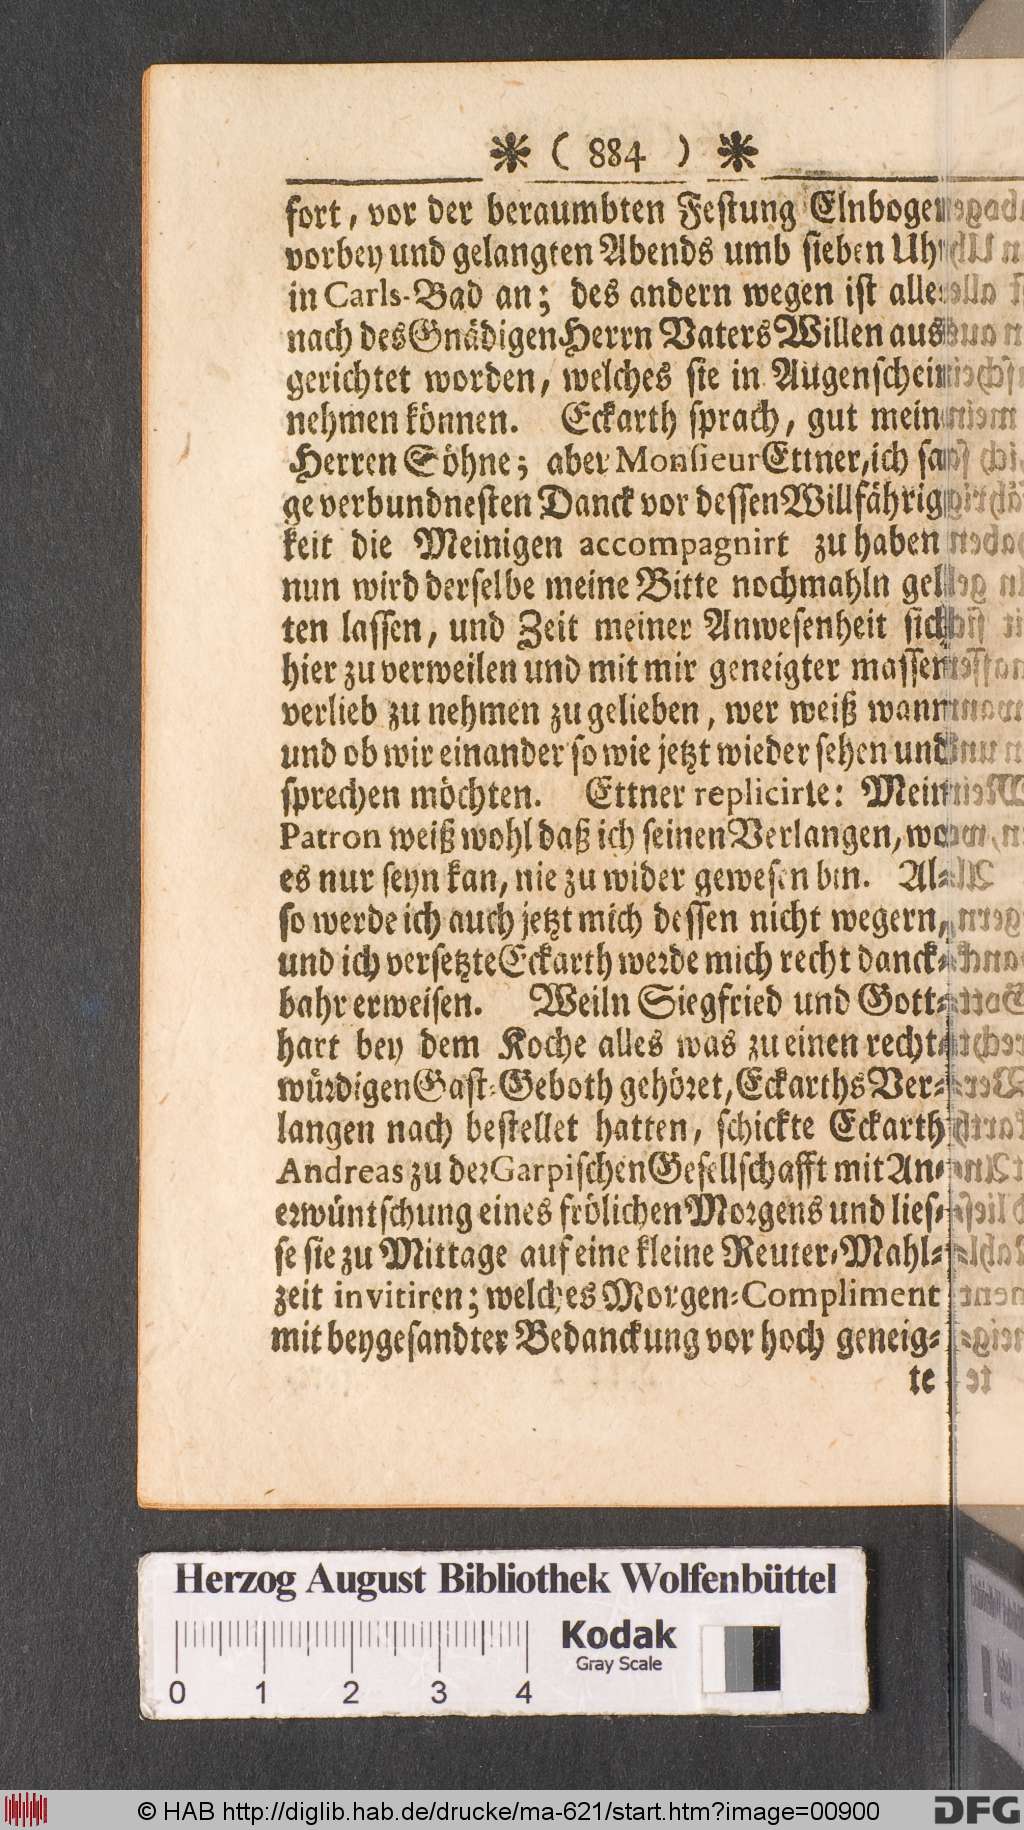 ( 884 )
fort, vor der beraumbten Festung Elnbogen
vorbey und gelangten Abends umb sieben Uhr
in Carls-Bad an; des andern wegen ist alles
nach des Gnädigen Herrn Vaters Willen aus
gerichtet worden, welches sie in Augenschein
nehmen können. Eckarth sprach, gut mein
Herren Söhne; aber Monsieur Ettner, ich sa
ge verbundnesten Danck vor dessen Willfährig
keit die Meinigen accompagnirt zu haben
nun wird derselbe meine Bitte nochmahln gel
ten lassen, und Zeit meiner Anwesenheit sich
hier zu verweilen und mit mir geneigter massen
verlieb zu nehmen zu gelieben, wer weiß wann
und ob wir einander so wie jetzt wieder sehen und
sprechen möchten. Ettner replicirte: Mein
Patron weiß wohl daß ich seinen Verlangen, wo
es nur seyn kan, nie zu wider gewesen bin. Al-
so werde ich auch jetzt mich dessen nicht wegern,
und ich versetzte Eckarth werde mich recht danck-
bahr erweisen. Weiln Siegfried und Gott-
hart bey dem Koche alles was zu einen recht-
würdigen Gast-Geboth gehöret, Eckarths Ver-
langen nach bestellet hatten, schickte Eckarth
Andreas zu der Garpischen Gesellschafft mit An-
erwüntschung eines frölichen Morgens und lies-
se sie zu Mittage auf eine kleine Reuter-Mahl-
zeit invitiren; welches Morgen-Compliment
mit beygesandter Bedanckung vor hoch geneig-
te
Herzog August Bibliothek Wolfenbüttel
Kodak
Gray Scale
0 1 2 3 4
© HAB http://diglib.hab.de/drucke/ma-621/start.htm?image=00900
DFG